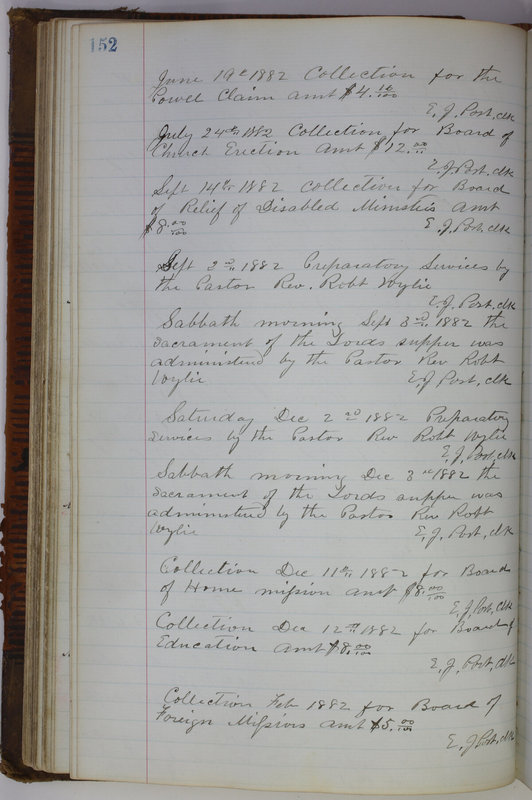 152
June 19th 1882 Collection for the
Powel Claim amt $4.10/100
E. J. Post, clk
July 24th 1882 Collection for Board of
Church Erection Amt $12.00/100
E. J. Post, clk
Sept 14th 1882 collection for Board
of Relief of Disabled Ministers amt
$8.00/100 E. J. Post, clk
Sept 2nd 1882 Preparatory Services by
the Pastor Rev. Robt Wylie
E. J. Post, clk
Sabbath morning Sept 3rd 1882 the
sacrament of the Lords supper was
administered by the Pastor Rev Robt
Wylie E. J. Post, clk
Saturday Dec 2nd 1882 Preparatory
services by the Pastor Rev Robt Wylie
E. J. Post, clk
Sabbath morning Dec 3rd 1882 the
sacrament of the Lords supper was
administered by the Pastor Rev Robt
Wylie E. J. Post, clk
Collection Dec 11th 1882 for Board
of Home mission amt $8.00/100
E. J. Post, clk
Collection Dec 12th 1882 for Board of
Education amt $8.00/100
E. J. Post, clk
Collection Feb 1882 for Board of
Foreign Missions amt $5.00/100
E. J. Post, clk